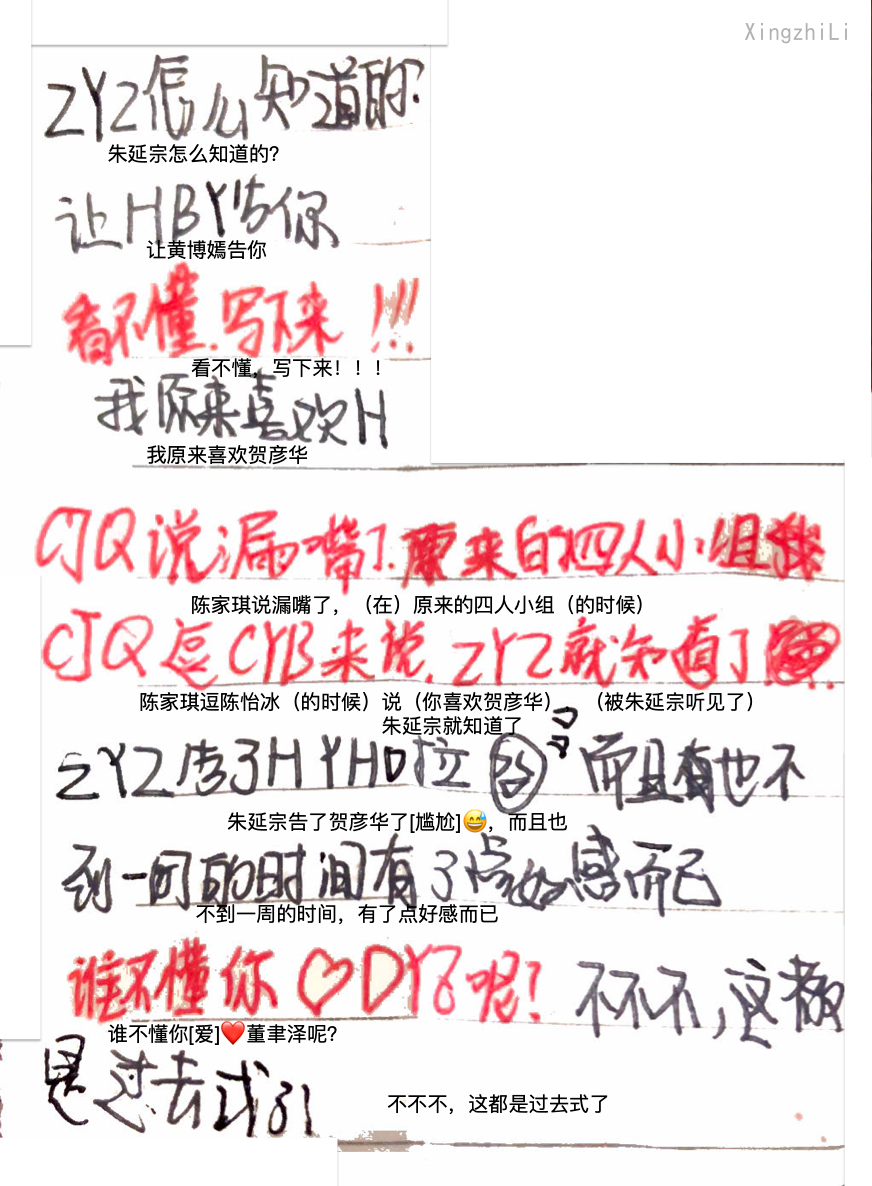 XingzhiLi
ZYZ怎么知道的?
朱延宗怎么知道的?
让HBY告你
让黄博嫣告你
看不懂.写下来!!!
看不懂，写下来！！！
我原来喜欢H
我原来喜欢贺彦华
CJQ说漏嘴了.原来的四人小组
陈家琪说漏嘴了，（在）原来的四人小组（的时候）
CJQ逗CYB来说,ZYZ就知道了
陈家琪逗陈怡冰（的时候）说（你喜欢贺彦华）　（被朱延宗听见了）
朱延宗就知道了
ZYZ告了HYH口拉 而且 也不
朱延宗告了贺彦华了[尴尬]😅，而且也
到一周的时间有了点好感而已
不到一周的时间，有了点好感而已
谁不懂你♡DYZ呢? 不不不,这都
谁不懂你[爱]❤️董聿泽呢?
是过去式了!
不不不，这都是过去式了